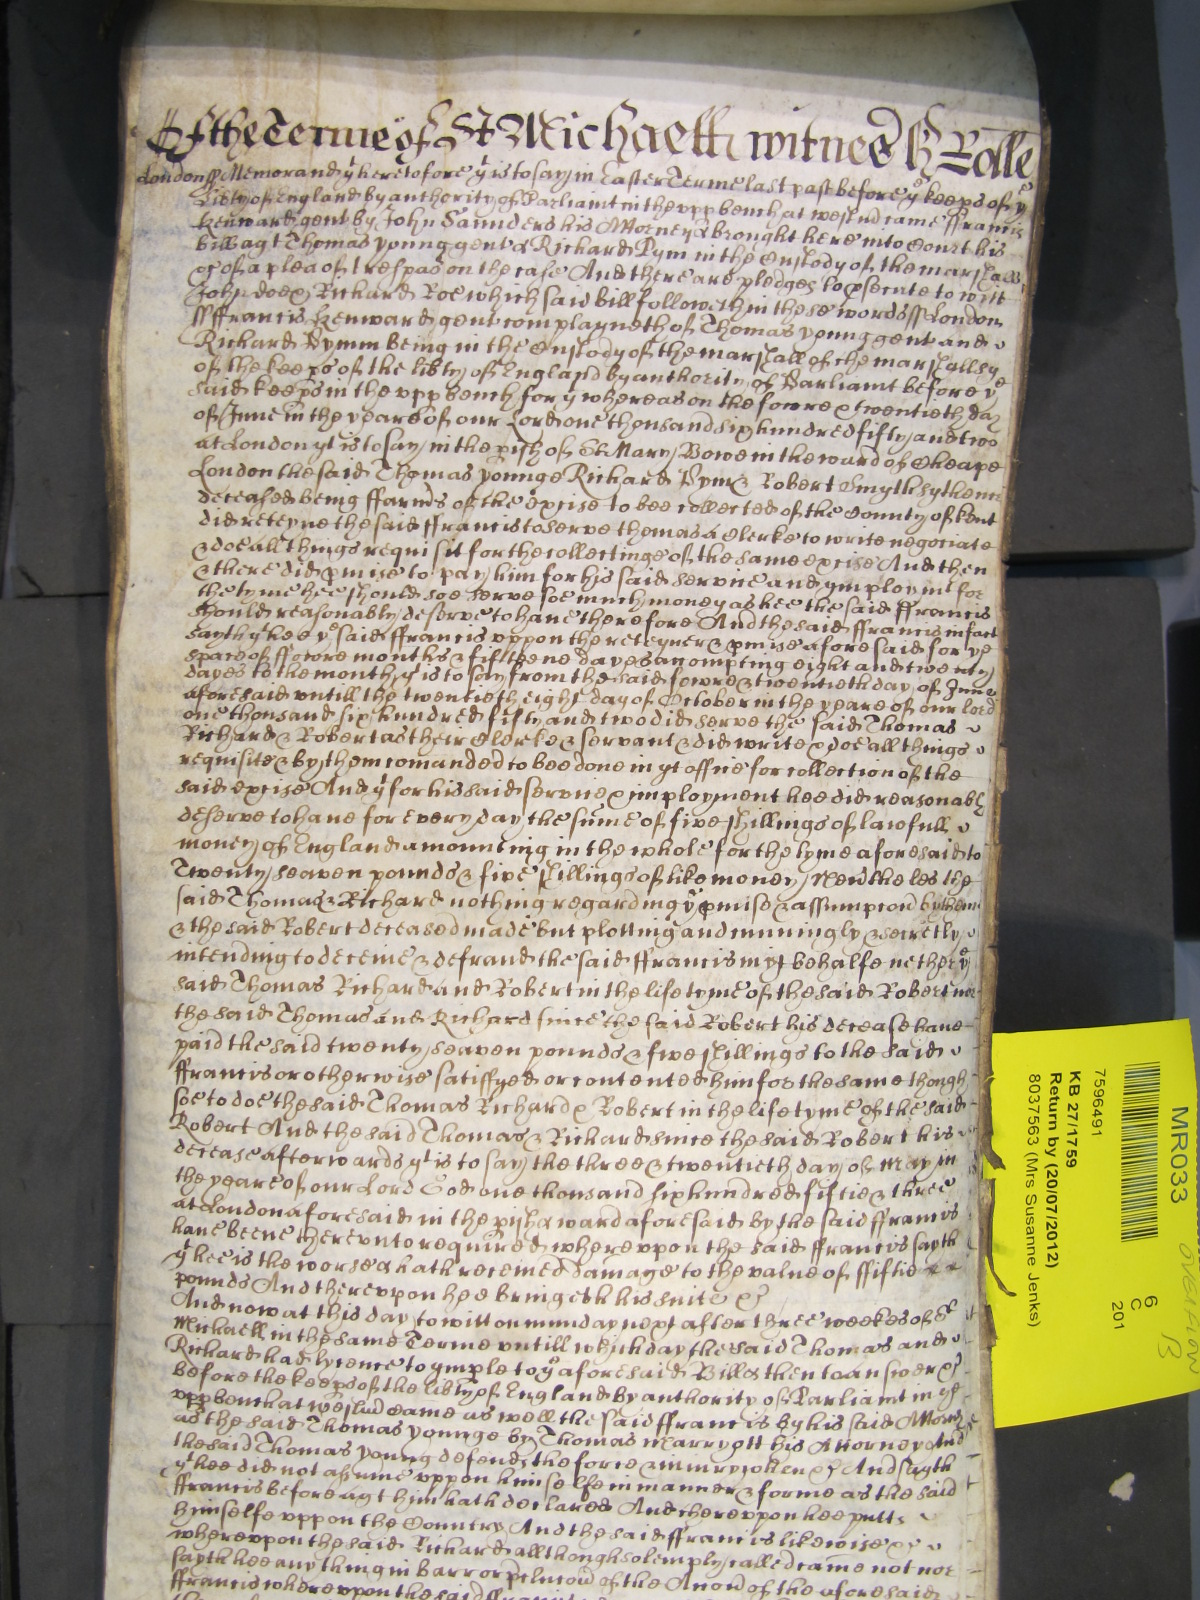 Of the Terme of St Michaell witnes H Rolle
London ss Memorand yt heretofore yt is to say in Easter Terme last past before ye keeps of ye
Libty of England by authority of Parliamt in the upp bench at Westmr came ffrancis
Kenward gent by John Saunders his Attorney & brought here into Court his
bill agt Thomas young gent & Richard Pym in the Custody of the marshall
&c of a plea of trespas on the case And there are pledges to psecute to witt
John doe & Richard Roe which said bill followeth in these words ss London
ss ffrancis Kenward gent complayneth of Thomas young gent and
Richard Pymm being in the Custody of the marshall of the marshallsey
of the keeps of the libty of England by authority of Parliamt before ye
said keeps in the upp bench for yt whereas on the fowre & twentieth day
of June in the yeare of our Lord one thousand six hundred fifty and two
at London yt is to say in the pish of St Mary Bowe in the ward of Cheape
London the said Thomas younge Richard Pym & Robert Smyth sythence
deceased being ffarmds of the excise to bee collected of the County of Kent
did reteyne the said ffrancis to serve them as a Clerke to write negociate
& doe all things requisit for the collectinge of the same excise And then
& there did pmise to pay him for his said service and ymploymt for
the tyme hee should soe serve soe much money as hee the said ffrancis
should reasonably deserve to have therefore And the said ffrancis in fact
sayth yt hee ye said ffrancis uppon the reteyner & pmise aforesaid for ye
space of ffowre months & fifteene dayes accompting eight and twenty
dayes to the month yt is to say from the said fowre & twentieth day of June
aforesaid untill the twentieth eight day of October in the yeare of our lord
one thousand six hundred fifty and two did serve the said Thomas
Richard & Robert as their Clerke & servant & did write & doe all things
requisite & by them comanded to bee done in yt office for collection of the
said excise And yt for his said service & imployment hee did reasonably
deserve to have for every day the sume of five shillings of lawfull
money of England amounting in the whole for the tyme aforesaid to
Twenty seaven pounds & five shillings of like money Nevtheles the
said Thomas & Richard nothing regarding ye pmise & assumpcon by them
& the said Robert deceased made but plotting and cunningly & secretly
intending to deceive & defraud the said ffrancis in yt behalfe nether ye
said Thomas Richard and Robert in the life tyme of the said Robert nor
the said Thomas and Richard since the said Robert his decease have
paid the said twenty seaven pounds & five shillings to the said
ffrancis or otherwise satisfyed or contented him for the same though
soe to doe the said Thomas Richard & Robert in the life tyme of the said
Robert And the said Thomas & Richard since the said Robert his
decease afterwards yt is to say the three & twentieth day of May in
the yeare of our Lord God one thousand six hundred fiftie & three
at London aforesaid in the pish & ward aforesaid by the said ffrancis
have beene thereunto required whereuppon the said ffrancis sayth
yt hee is the worse & hath received damage to the value of ffiftie
pounds And thereuppon hee bringeth his suite &c
And now at this day to witt on munday next after three weekes of St
Michaell in the same Terme untill which day the said Thomas and
Richard had lycence to ymple to ye aforesaid Bill & then to answer &c
before the keeps of the libty of England by authority of Parliamt in ye
upp bench at Westmr came as well the said ffrancis by his said Attorny
as the said Thomas younge by Thomas Marryott his Attorney And
the said Thomas young defends the force & iniury when &c And sayth
yt hee did not assume uppon himselfe in manner & forme as the said
ffrancis before agt him hath declared And thereuppon hee putts
himselfe uppon the Country And the said ffrancis likewise &c
whereuppon the said Richard allthough solemply called came not nor
sayth hee any thing in barr or pclucon of the Accon of the aforesaid
ffrancis whereuppon the said ffrancis
MR033
6
C
201
75964491
KB 27/1759
Return by (20/07/2012)
8037563 (Mrs Susanne Jenks)